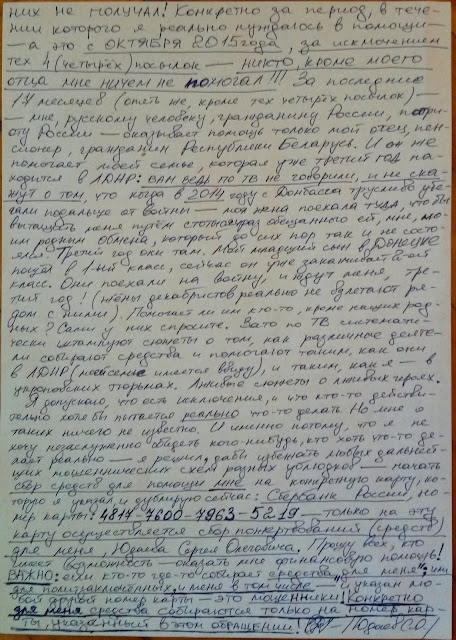 них не получал! Конкретно за период, в тече-
нии которого я реально нуждаюсь в помощи —
— а это с ОКТЯБРЯ 2015 года, за исключением
тех 4 (четырёх) посылок — никто, кроме моего
отца мне ничем не помогал!!! За последние
17 месяцев (опять же, кроме тех четырёх посылок) —
— мне, русскому человеку, гражданину России, патри-
оту России — оказывает помощь только мой отец, пен-
сионер, гражданин Республики Беларусь. И он же
помогает моей семье, которая уже третий год на-
ходится в ЛДНР: вам ведь по ТВ не говорили, и не ска-
жут о том, что когда в 2014 году с Донбасса трусливо убе-
гали подальше от войны — моя жена поехала туда, что бы
вытащить меня путём стократ обещанного ей, мне, мо-
им родным обмена, который до сих пор так и не состо-
ялся. Третий год они там. Мой младший сын в Донецке
пошёл в 1-ый класс, сейчас он уже заканчивает 2-ой
класс. Они поехали на войну, и ждут меня, тре-
тий год! (жёны декабристов реально не взлетают ря-
дом с ними). Помогает ли им кто-то, кроме наших род-
ных? Сами у них спросите. Зато по ТВ системати-
чески штампуют сюжеты о том, как различные деяте-
ли собирают средства и помогают таким, как они
в ЛДНР (мои семье имеется ввиду), и таким, как я — в
укроповских тюрьмах. Лживые сюжеты о лживых героях.
Я допускаю, что есть исключения, и что кто-то действи-
тельно хотя бы пытается реально что-то делать. Но мне о
таких ничего не известно. И именно потому, что я не
хочу незаслуженно обидеть кого-нибудь, кто хоть что-то де-
лает реально — я решил, дабы избежать любых дальней-
ших мошеннических схем разных ублюдков — начать
сбор средств для помощи мне на конкретную карту, ко-
торую я указал, и дублирую сейчас: Сбербанк России, но-
мер карты: 4817-7600-7963-5219 — только на эту
карту осуществляется сбор пожертвований (средств)
для меня, Юдаева Сергея Олеговича. Прошу всех, кто
имеет возможность — оказать мне финансовую помощь!
ВАЖНО: если кто-то где-то собирает средства для меня, или
для политзаключённых, и меня в том числе — и указан лю-
бой другой номер карты — это мошенники! Конкретно
для меня средства собираются только на номер кар-
ты, указанный в этом обращении! Юдаев С.О.